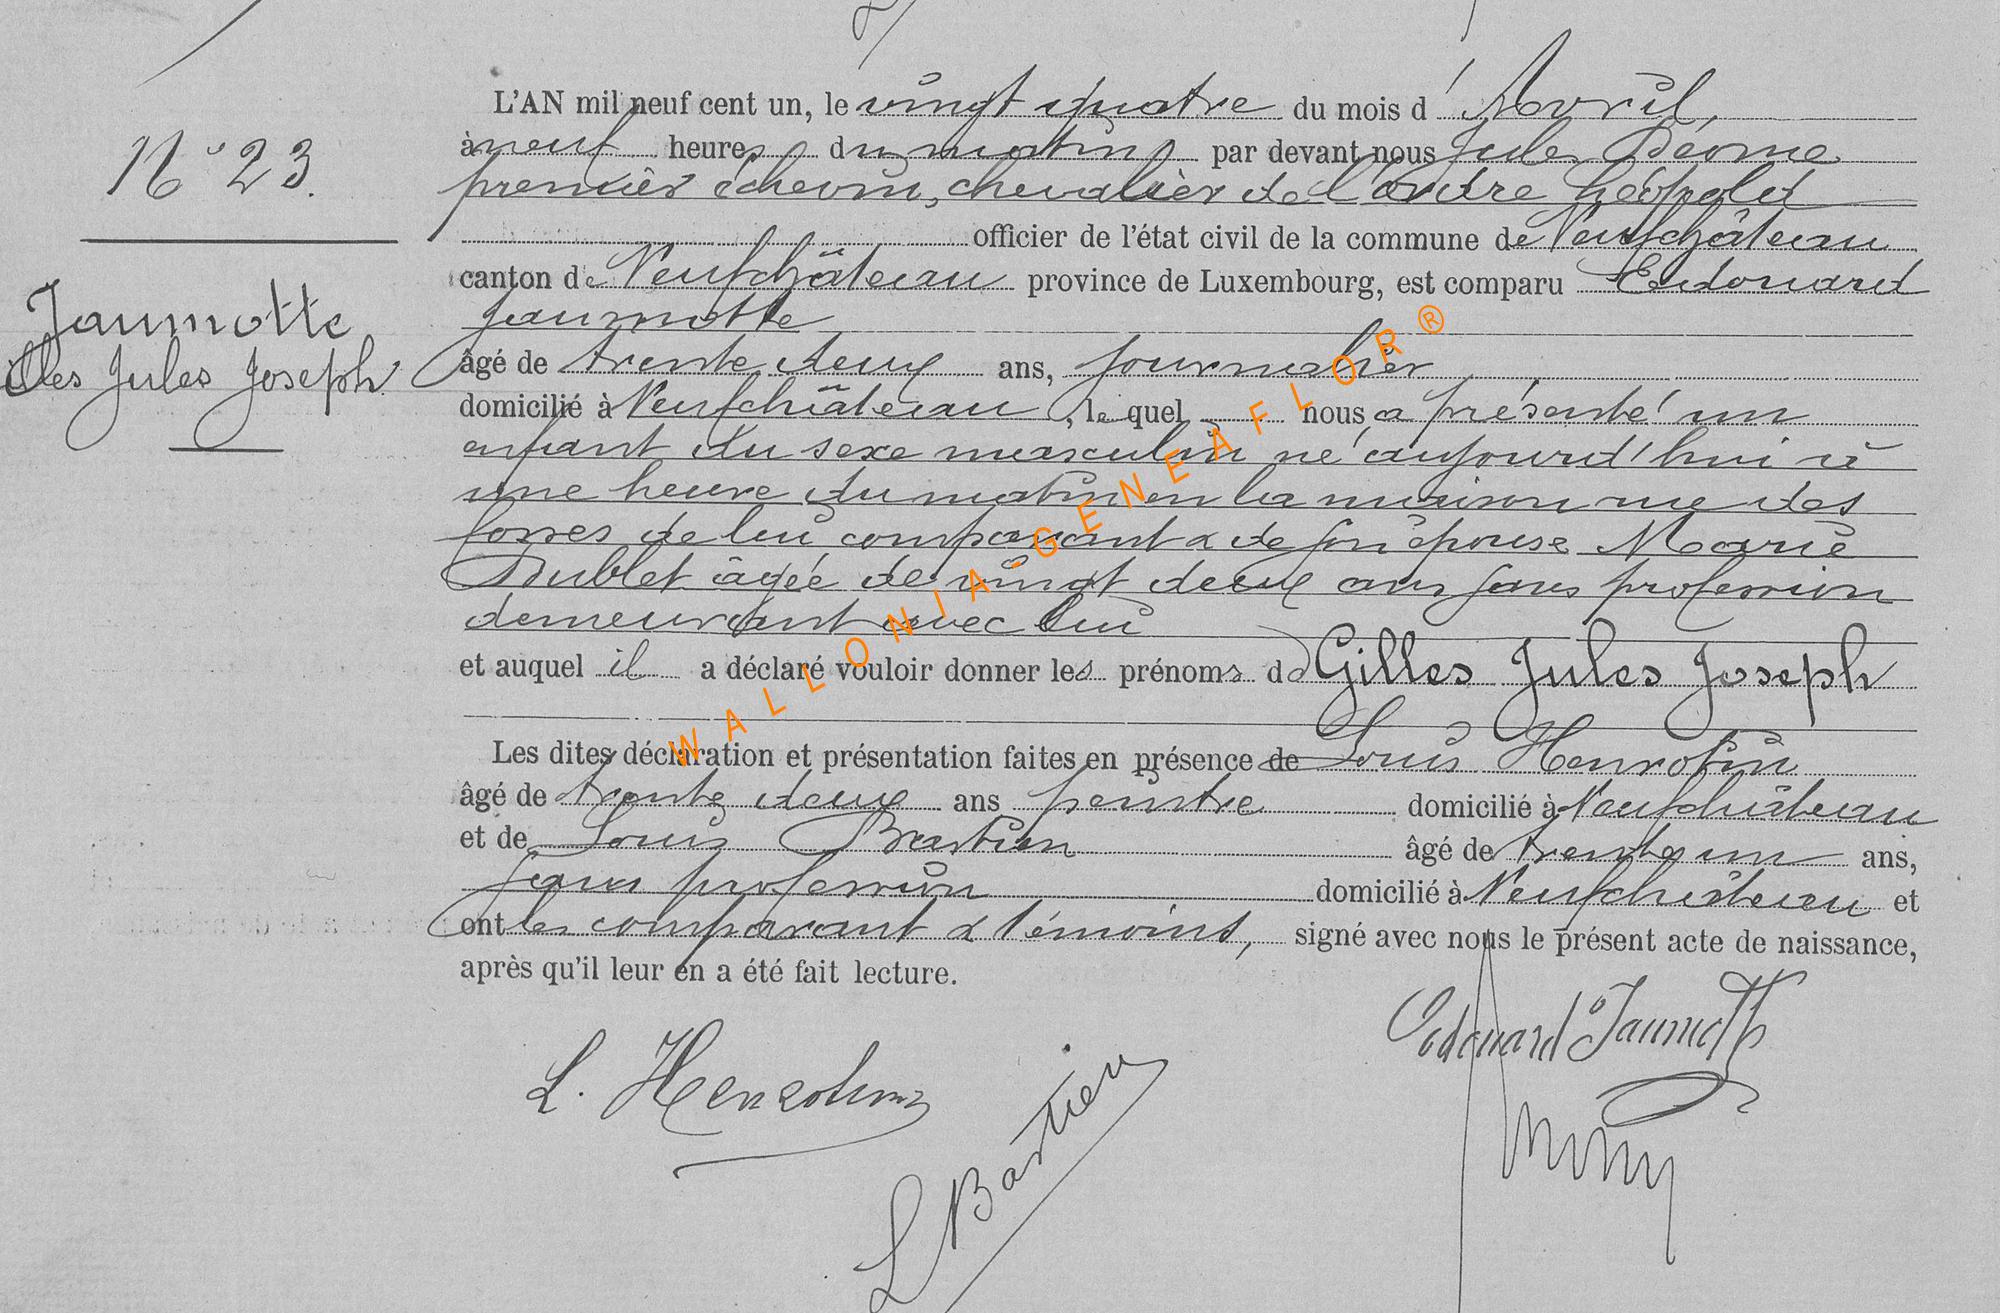 L'AN mil neuf cent un, le vingt quatre du mois d' Avril,
N° 23.
à neuf heures du matin par devant nous Jules
premier échevin, chevalier de l'ordre Léopold
officier de l'état civil de la commune de Neufchâteau
canton de Neufchâteau province de Luxembourg, est comparu Edouard
Jaumotte
Jaumotte
âgé de trente deux ans, journalier
lles Jules Joseph
domicilié à Neufchâteau, lequel nous a présenté un
enfant du sexe masculin né aujourd'hui à
une heure du matin en la maison rue des
fosses de lui comparant & de son épouse Marie
Dublet âgée de vingt deux ans sans profession
demeurant avec lui
et auquel il a déclaré vouloir donner les prénoms de Gilles Jules Joseph
Les dites déclaration et présentation faites en présence de Louis Henrotin
âgé de trente deux ans peintre domicilié à Neufchâteau
et de Louis Bastien âgé de trente un ans,
sans profession domicilié à Neufchâteau et
ont les comparant & témoins, signé avec nous le présent acte de naissance,
après qu'il leur en a été fait lecture.
Edouard Jaumotte
L. Henrotin
L Bastien
WALLONIA GENEAFLOR®